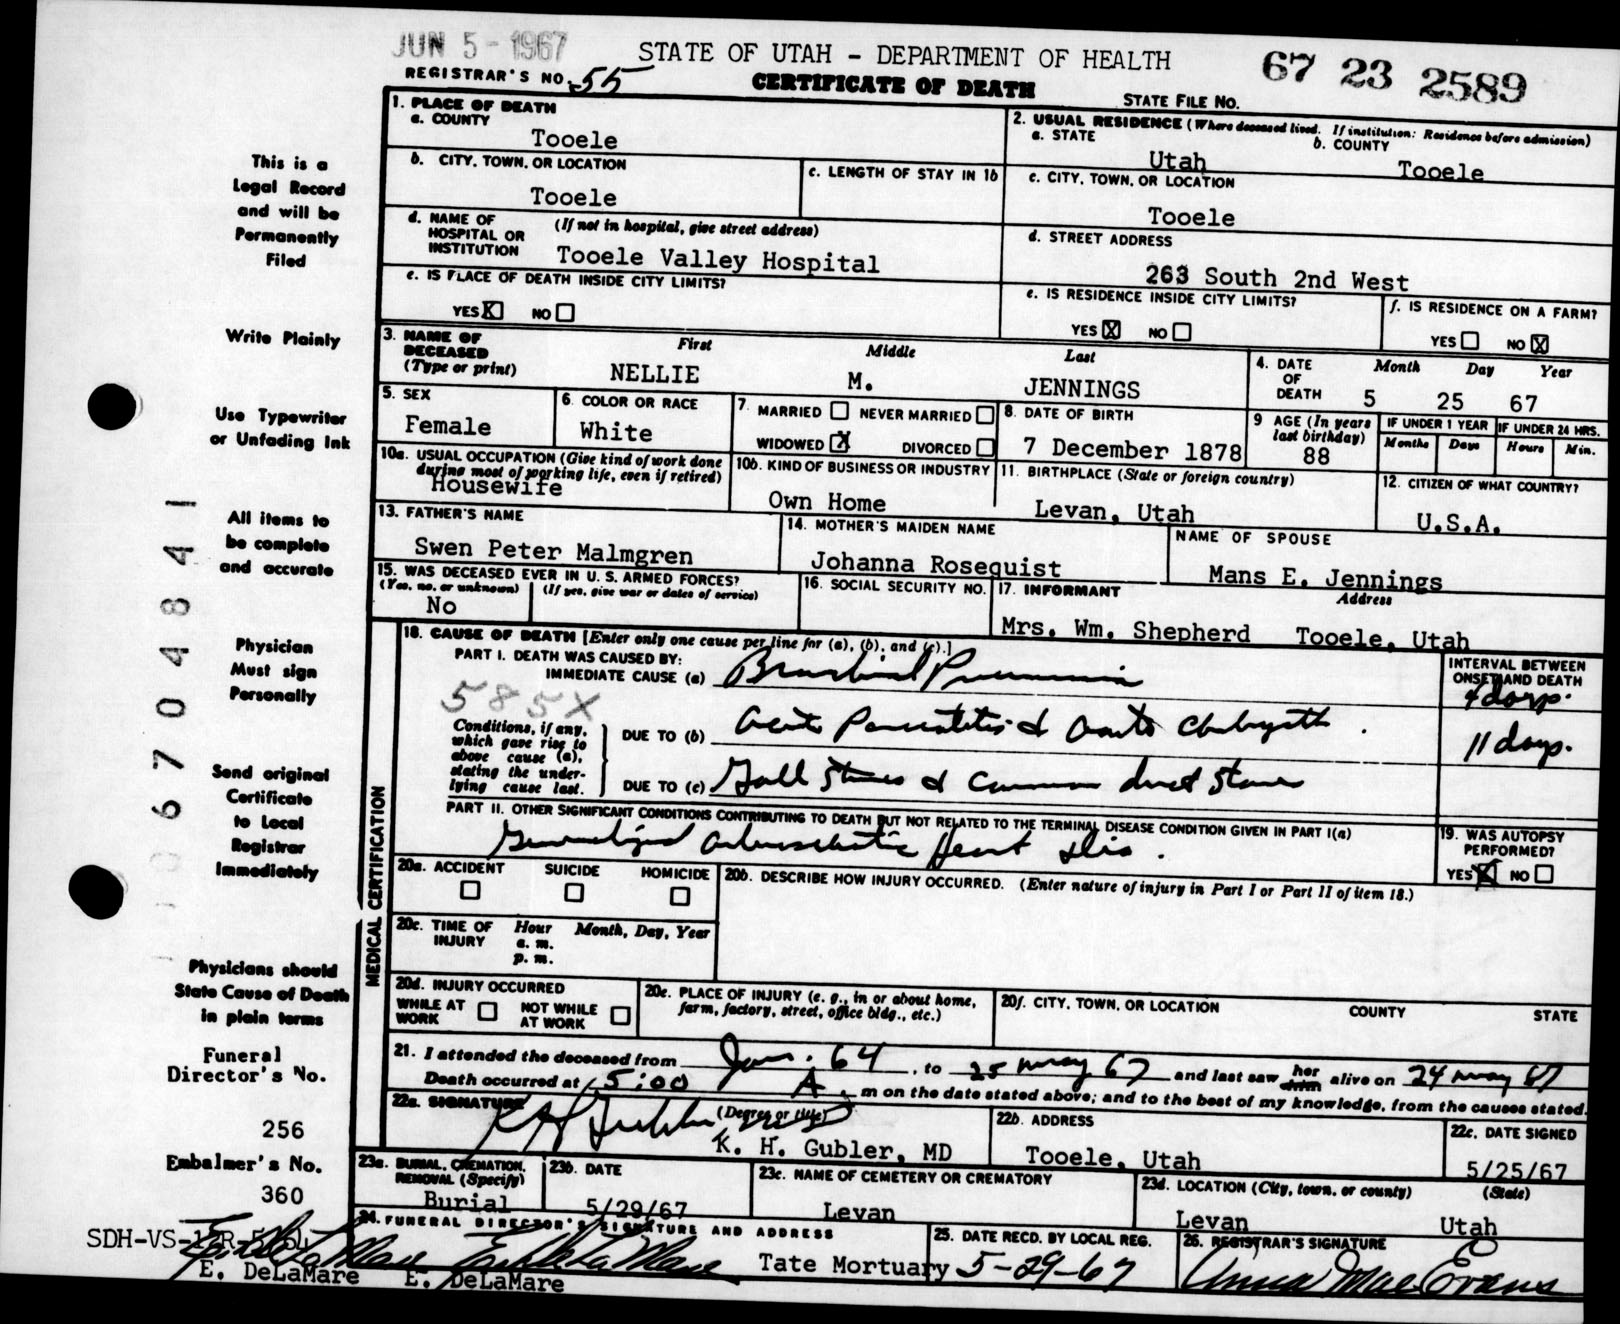 JUN 5 - 1967
STATE OF UTAH - DEPARTMENT OF HEALTH
67 23 2589
REGISTRAR'S NO. 55
CERTIFICATE OF DEATH
STATE FILE NO.
This is a
Legal Record
and will be
Permanently
Filed
Write Plainly
Use Typewriter
or Unfading Ink
All items to
be complete
and accurate
Physician
Must sign
Personally
Send original
Certificate
to Local
Registrar
Immediately
Physicians should
State Cause of Death
in plain terms
Funeral
Director's No.
256
Embalmer's No.
360
067 04841
1. PLACE OF DEATH
a. COUNTY
Tooele
2. USUAL RESIDENCE (Where deceased lived. If institution: Residence before admission)
a. STATE
Utah
b. COUNTY
Tooele
b. CITY, TOWN, OR LOCATION
Tooele
c. LENGTH OF STAY IN 1b
c. CITY, TOWN, OR LOCATION
Tooele
d. NAME OF HOSPITAL OR INSTITUTION
(If not in hospital, give street address)
Tooele Valley Hospital
d. STREET ADDRESS
263 South 2nd West
e. IS PLACE OF DEATH INSIDE CITY LIMITS?
YES X NO
e. IS RESIDENCE INSIDE CITY LIMITS?
YES X NO
f. IS RESIDENCE ON A FARM?
YES NO X
3. NAME OF DECEASED
(Type or print)
First Middle Last
NELLIE M. JENNINGS
4. DATE OF DEATH
Month Day Year
5 25 67
5. SEX
Female
6. COLOR OR RACE
White
7. MARRIED NEVER MARRIED
WIDOWED X DIVORCED
8. DATE OF BIRTH
7 December 1878
9 AGE (In years last birthday)
88
IF UNDER 1 YEAR
Months Days
IF UNDER 24 HRS.
Hours Min.
10a. USUAL OCCUPATION (Give kind of work done during most of working life, even if retired)
Housewife
10b. KIND OF BUSINESS OR INDUSTRY
Own Home
11. BIRTHPLACE (State or foreign country)
Levan, Utah
12. CITIZEN OF WHAT COUNTRY?
U.S.A.
13. FATHER'S NAME
Swen Peter Malmgren
14. MOTHER'S MAIDEN NAME
Johanna Rosequist
NAME OF SPOUSE
Mans E. Jennings
15. WAS DECEASED EVER IN U. S. ARMED FORCES?
(Yes, no, or unknown) (If yes, give war or dates of service)
No
16. SOCIAL SECURITY NO.
17. INFORMANT Address
Mrs. Wm. Shepherd Tooele, Utah
MEDICAL CERTIFICATION
18. CAUSE OF DEATH [Enter only one cause per line for (a), (b), and (c).]
PART I. DEATH WAS CAUSED BY:
IMMEDIATE CAUSE (a) Bronchial Pneumonia
INTERVAL BETWEEN ONSET AND DEATH
4 days.
585X
Conditions, if any, which gave rise to above cause (a), stating the underlying cause last.
DUE TO (b) Acute Pancreatitis & Acute Cholecystitis.
11 days.
DUE TO (c) Gall Stones & Common duct Stone
PART II. OTHER SIGNIFICANT CONDITIONS CONTRIBUTING TO DEATH BUT NOT RELATED TO THE TERMINAL DISEASE CONDITION GIVEN IN PART I(a)
Generalized Arteriosclerotic Heart dis.
19. WAS AUTOPSY PERFORMED?
YES X NO
20a. ACCIDENT SUICIDE HOMICIDE
20b. DESCRIBE HOW INJURY OCCURRED. (Enter nature of injury in Part I or Part II of item 18.)
20c. TIME OF INJURY
Hour Month, Day, Year
a. m.
p. m.
20d. INJURY OCCURRED
WHILE AT WORK NOT WHILE AT WORK
20e. PLACE OF INJURY (e. g., in or about home, farm, factory, street, office bldg., etc.)
20f. CITY, TOWN, OR LOCATION COUNTY STATE
21. I attended the deceased from Jan. 64, to 25 May 67 and last saw her him alive on 24 May 67
Death occurred at 5:00 A. m on the date stated above; and to the best of my knowledge, from the causes stated.
22a. SIGNATURE (Degree or title)
K H Gubler MD
K. H. Gubler, MD
22b. ADDRESS
Tooele, Utah
22c. DATE SIGNED
5/25/67
23a. BURIAL, CREMATION, REMOVAL (Specify)
Burial
23b. DATE
5/29/67
23c. NAME OF CEMETERY OR CREMATORY
Levan
23d. LOCATION (City, town, or county) (State)
Levan Utah
24. FUNERAL DIRECTOR'S SIGNATURE AND ADDRESS
E. DeLaMare E. DeLaMare Tate Mortuary
25. DATE RECD. BY LOCAL REG.
5-29-67
26. REGISTRAR'S SIGNATURE
Anna Mae Evans
E. DeLaMare E. DeLaMare